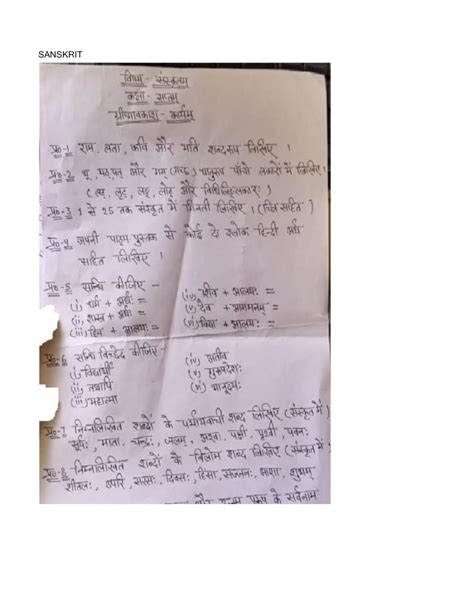 SANSKRIT
विषय - संस्कृतम्
कक्षा - सप्तम्
ग्रीष्मावकाश - कार्यम्
प्र०-1 राम, लता, कवि और मति शब्दरूप लिखिए ।
प्र०-2 भू, पठ्, और गम् (गच्छ) धातुरूप पाँचों लकारों में लिखिए ।
(लट्, लृट्, लङ्, लोट् और विधिलिङ्लकारः )
प्र०-3 1 से 25 तक संस्कृत में गिनती लिखिए । (चित्र सहित )
प्र०-4 अपनी पाठ्य पुस्तक से कोई दो श्लोक हिन्दी अर्थ
सहित लिखिए ।
प्र०-5 सन्धि कीजिए -
(i) धर्म + अर्थः = (iv) + आलयः =
(ii) + = (v) देव + आगमनम् =
(iii) हिम + आलयः = (vi) विद्या + आलयः =
प्र०-6 सन्धि विच्छेद कीजिए
(i) विद्यार्थी (iv) अतीव
(ii) तथापि (v)
(iii) महात्मा (vi) भानूदयः
प्र०-7 निम्नलिखित शब्दों के पर्यायवाची शब्द लिखिए (संस्कृत में )
सूर्यः, माता, चन्द्रः, जलम्, अश्वः, पक्षी, पृथ्वी, पवनः
प्र०-8 निम्नलिखित शब्दों के विलोम शब्द लिखिए (संस्कृत में )
शीतलः, उपरि, सरसः, दिवसः, हिंसा, सज्जनः, आशा, शुभम्
और पुरुष के सर्वनाम